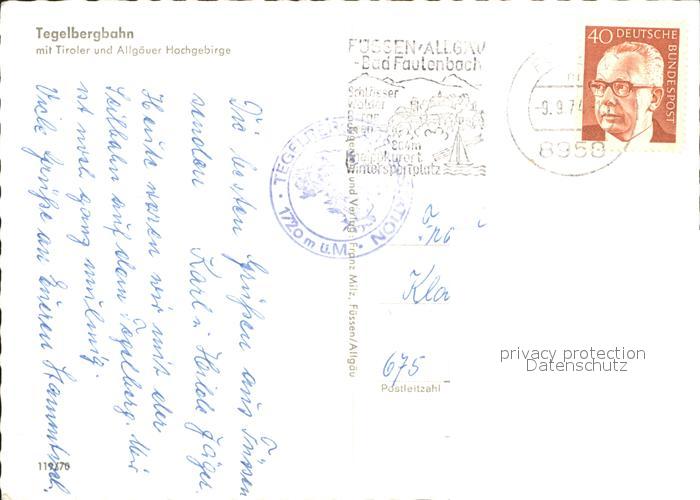 Tegelbergbahn
mit Tiroler und Allgäuer Hochgebirge
Die besten Grüßen aus Füssen
senden
Karl u. Heide Jäger.
Heute waren wir mit der
Seilbahn auf dem Tegelberg. Mir
ist noch ganz
Viele Grüße an Eueren
119/70
FÜSSEN/ALLGÄU
-Bad Faulenbach
Schlösser
Wälder
Kneippkurort
Wintersportplatz
-9.9.74
8958
40 DEUTSCHE BUNDESPOST
TEGELBERG STATION
1720 m ü.M.
und Verlag: Franz Milz, Füssen/Allgäu
Kla
675
Postleitzahl
privacy protection
Datenschutz